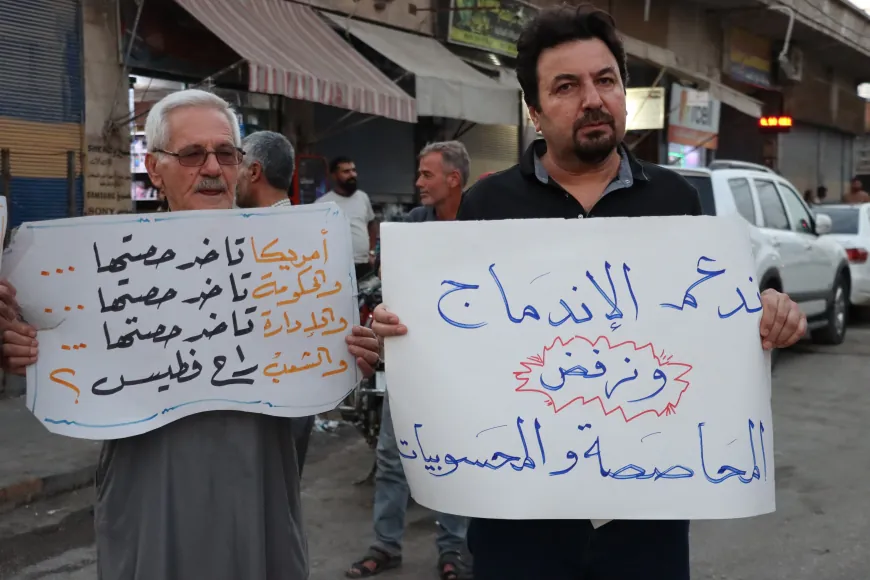 أمريكا تاخد حصتها ...
والحكومة تاخد حصتها ...
والإدارة تاخد حصتها ...
والشعب راح فطيس ؟
ندعم الإندماج
ونرفض
المحاصصة والمحسوبيات
SAMSUNG
SONY